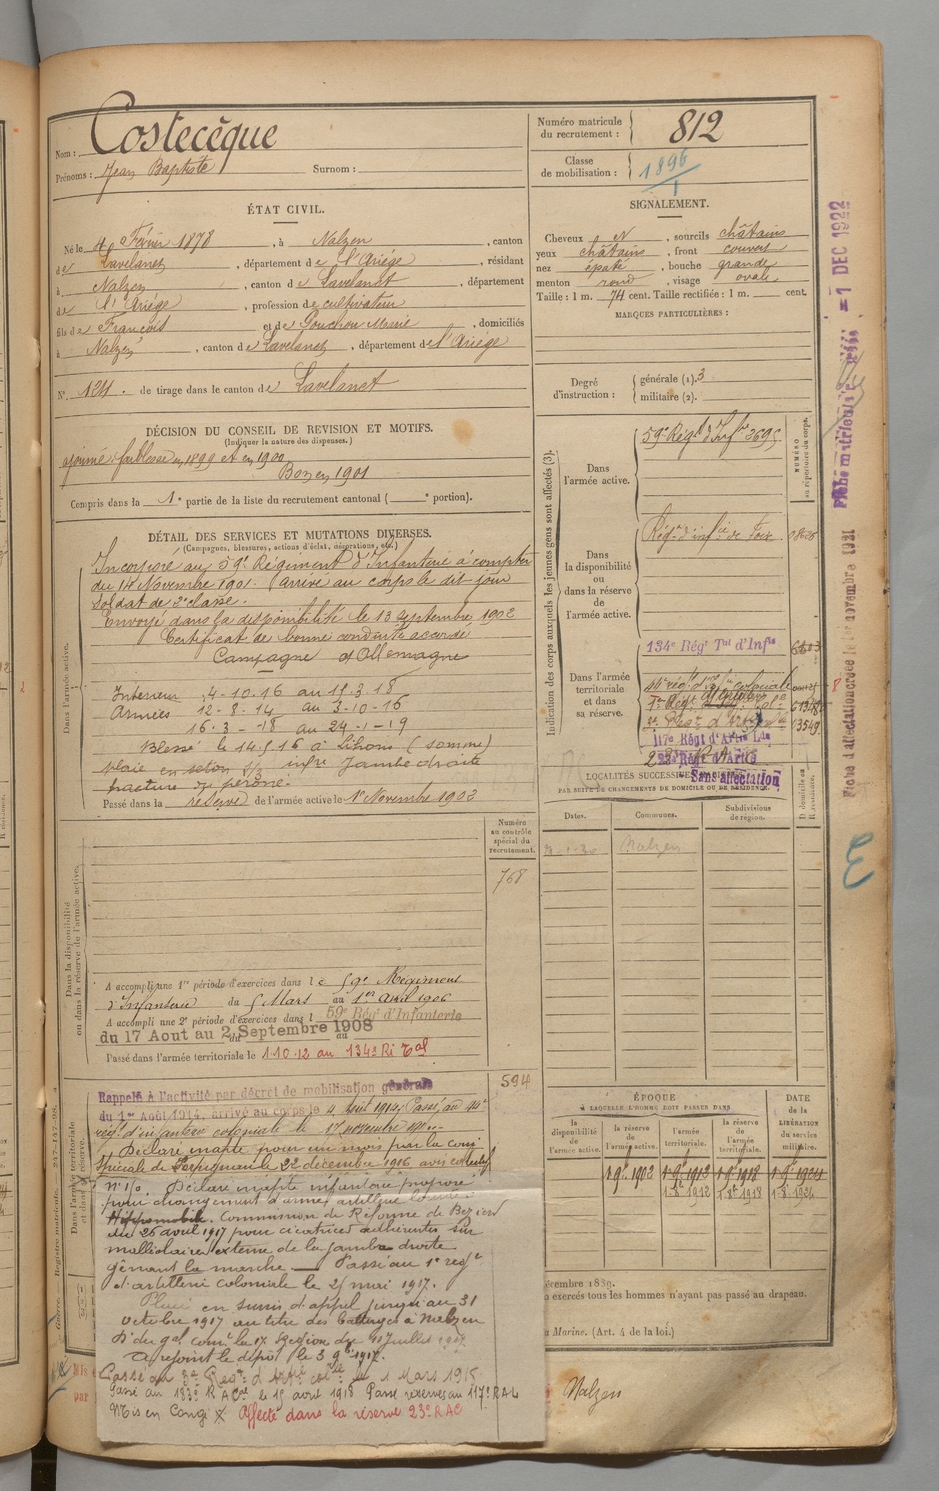 Nom : Costecèque
Prénoms : Jean Baptiste Surnom :
Numéro matricule du recrutement : 812
Classe de mobilisation : 1896
ÉTAT CIVIL.
Né le 4 Février 1878, à Nalzen, canton
de Lavelanet, département de l'Ariège, résidant
à Nalzen, canton de Lavelanet, département
de l'Ariège, profession de cultivateur
fils de François et de Gouchou Marie, domiciliés
à Nalzen, canton de Lavelanet, département de l'Ariège
N° 124. de tirage dans le canton de Lavelanet
SIGNALEMENT.
Cheveux N, sourcils châtains
yeux châtains, front couvert
nez épaté, bouche grande
menton rond, visage ovale
Taille : 1 m. 74 cent. Taille rectifiée : 1 m. cent.
MARQUES PARTICULIÈRES :
Degré d'instruction : générale (1). 3
militaire (2).
DÉCISION DU CONSEIL DE REVISION ET MOTIFS.
(Indiquer la nature des dispenses.)
ajourné faiblesse en 1899 et en 1900
Bon en 1901
Compris dans la 1e partie de la liste du recrutement cantonal ( e portion).
DÉTAIL DES SERVICES ET MUTATIONS DIVERSES.
(Campagnes, blessures, actions d'éclat, décorations, etc.)
Dans l'armée active.
Incorporé au 59e Régiment d'Infanterie à compter
du 14 Novembre 1901. Arrivé au corps le dit jour
soldat de 2e classe.
Envoyé dans la disponibilité le 13 Septembre 1902
Certificat de bonne conduite accordé
Campagne d'Allemagne
Interieur 4-10.16 au 11.3.18
Armées 12-8.14 au 3-10-16
16.3--18 au 24-1-19
Blessé le 14.5.16 à Lihons (somme)
plaie en seton infre Jambe droite
fracture du péroné.
Passé dans la réserve de l'armée active le 1er Novembre 1902
Indication des corps auxquels les jeunes gens sont affectés (3).
NUMÉRO au répertoire du corps.
Dans l'armée active.
59e Régt d'Infie 3695
Dans la disponibilité ou dans la réserve de l'armée active.
Régt d'infie de Foix
Dans l'armée territoriale et dans sa réserve.
134e Régt Tal d'Infie
117e Régt d'Artie Lde
Sans affectation
13549
LOCALITÉS SUCCESSIVES
PAR SUITE DE CHANGEMENTS DE DOMICILE OU DE RÉSIDENCE.
Dates. Communes. Subdivisions de région. D. domicile ou R. résidence.
Nalzen
Numéro au contrôle spécial du recrutement.
768
Dans la disponibilité ou dans la réserve de l'armée active.
A accompli une 1re période d'exercices dans le 59e Régiment
d'Infanterie du 5 Mars au 1er Avril 1906
A accompli une 2e période d'exercices dans l 59e Régt d'Infanterie
du 17 Aout au 2 Septembre 1908
Passé dans l'armée territoriale le 1.10.12 au 134e Ri Tal
594
Rappelé à l'activité par décret de mobilisation générale
du 1er Août 1914, arrivé au corps le 4 Août 1914. Passé au 44e
régt d'infanterie coloniale le 17 novembre
Déclaré inapte pour un mois par la com
spéciale de Perpignan le 22 décembre 1916 avis
Déclaré inapte infanterie proposé
pour changement d'arme artillerie lourde
Hippomobile. Commission de Réforme de Beziers
du 26 avril 1917 pour cicatrices adhérentes sur
malléolaire externe de la jambe droite
gênant la marche — Passé au 1e regt
d'artillerie coloniale le 25 mai 1917.
Placé en sursis d'appel jusqu'au 31
Octobre 1917 au titre des battages à Nalzen
A rejoint le dépôt le 3 9bre 1917.
Passé au 3e Regt d'Artie colle le 1 Mars 1915
Passé au 183e R A Cal le 15 aout 1918 Passé réserves au 117e RAL
Mis en Congé Affecté dans la réserve 23e RAC
ÉPOQUE
À LAQUELLE L'HOMME DOIT PASSER DANS
la disponibilité de l'armée active.
la réserve de l'armée active.
l'armée territoriale.
la réserve de l'armée territoriale.
DATE de la LIBÉRATION du service militaire.
1 9bre 1902 1 9bre 1912 1 9bre 1918
1-8-1912 1-8-1918 1-8-1924
décembre 1889.
exercés tous les hommes n'ayant pas passé au drapeau.
Marine. (Art. 4 de la loi.)
Nalzen
Fiche d'affectation créée le 1er novembre 1921
Fiche matricule = 1 DEC 1922